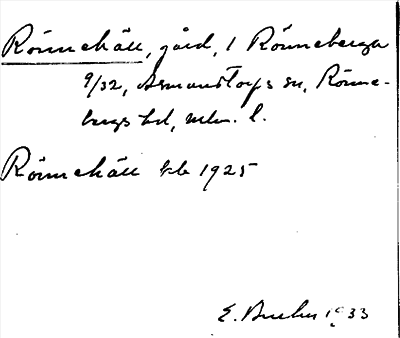 Rönnehäll, gård, 1 Rönneberga
9/32, Asmundtorps sn, Rönne-
bergs hd, mlm. l.
Rönnehäll kb 1925
E. 1933